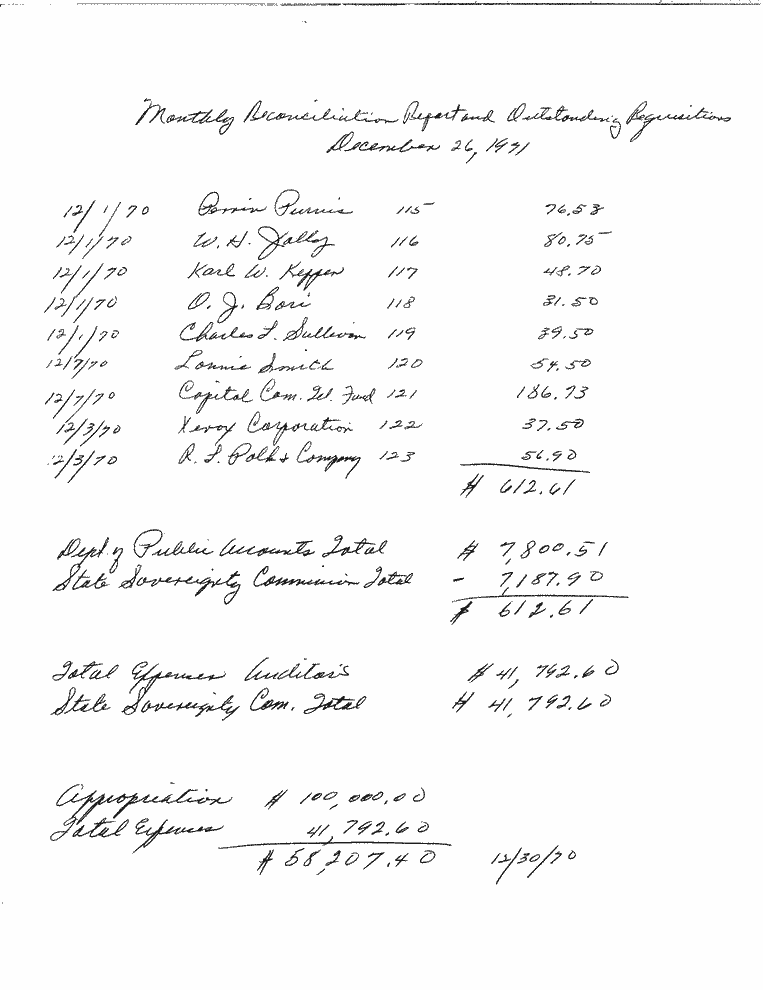 Monthly Reconciliation Report and Outstanding Requisitions
December 26, 1971
12/1/70 Purvis 115 76.53
12/1/70 W. H. Jolly 116 80.75
12/1/70 Karl W. Kepper 117 48.70
12/1/70 O. J. Bori 118 31.50
12/1/70 Charles L. Sullivan 119 39.50
12/7/70 Lonnie Smith 120 54.50
12/7/70 Capital Com. Fund 121 186.73
12/3/70 Xerox Corporation 122 37.50
12/3/70 R. L. Polk & Company 123 56.90
$ 612.61
Dept. of Public Accounts Total $ 7,800.51
State Sovereignty Commission Total - 7,187.90
$ 612.61
Total Expenses Auditors $ 41,792.60
State Sovereignty Com. Total $ 41,792.60
Appropriation $ 100,000.00
Total Expenses 41,792.60
$ 58,207.40 12/30/70